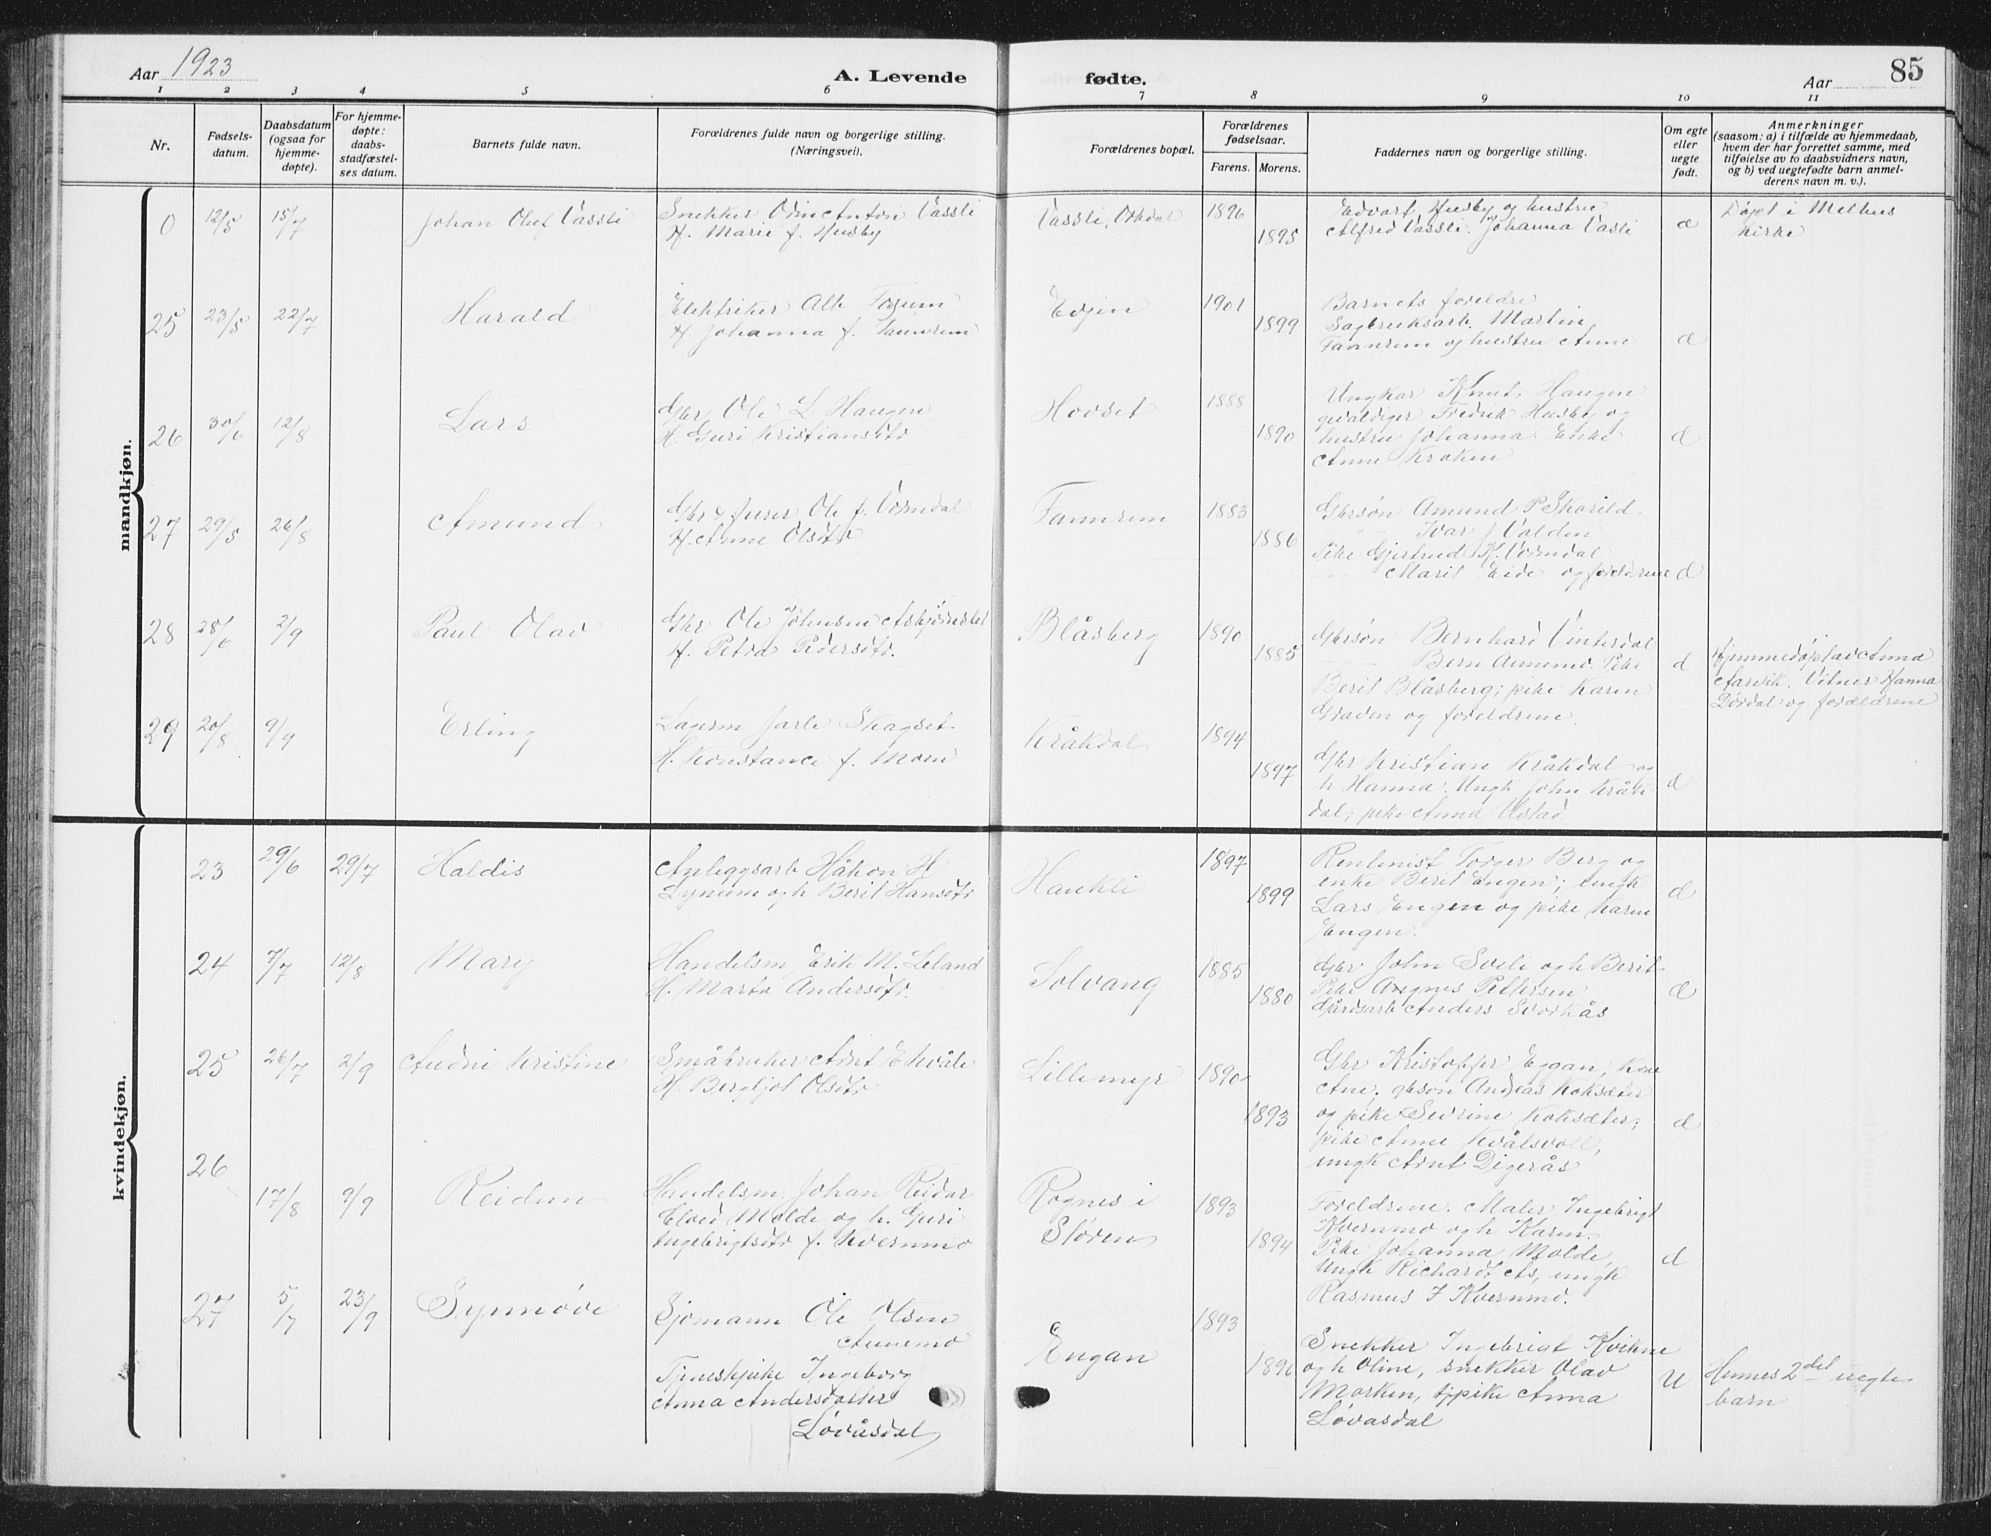 Aar 1923
A. Levende fødte.
Aar
85
1 2 3 4 5 6 7 8 9 10 11
Nr.
Fødsels-
datum.
Daabsdatum
(ogsaa for
hjemme-
døpte).
For hjemme-
døpte:
daabs-
stadfæstel-
ses datum.
Barnets fulde navn.
Forældrenes fulde navn og borgerlige stilling.
(Næringsvei).
Forældrenes bopæl.
Forældrenes
fødselsaar.
Farens. Morens.
Faddernes navn og borgerlige stilling.
Om egte
eller
uegte
født.
Anmerkninger
(saasom: a) i tilfælde av hjemmedaab,
hvem der har forrettet samme, med
tilføielse av to daabsvidners navn,
og b) ved uegtefødte barn anmel-
derens navn m. v.).
mandkjøn.
0 12/5 15/7 Johan Oluf Vassli
Snekker Odin Anton Vassli
H. Marie f. Husby
Vassli, Orkdal 1896
1895
Edvart Husby og hustru
Alfred Vassli. Johanna Vasli
æ
Døpt i Melhus
Kirke
25 23/5 22/7 Harald
Elektriker Alb. Forum
H. Johanna f. Fannrem
Evjen 1901
1899
Barnets foreldre
Sagbruksarb. Martin
Fannrem og hustru Anne
æ
26 30/6 12/8 Lars
Gbr. Ole L Haugen
H. Guri Kristiansdtr
Hovset 1888
1890
Ungkar Knut Haugen
gvaldiger Fredrik Husby og
hustru Johanna. Enke
Anne Kroken
æ
27 29/5 26/8 Amund
Gbr Ole f. Vormdal
H. Anne Olsdtr
Fannrem 1883
1886
Gbrsøn Amund P. Skorild
Ivar J Volden
Pike Gjertrud K. Vormdal
Marit Eide og foreldrene
æ
28 28/6 2/9 Paul Olav
Gbr Ole Johnsen
H. Petra Pedersdtr.
Blåsberg 1890
1885
Gbrsøn Bernhard Vinterdal
Bern Aunemo. Pike
Berit Blåsberg; pike Karen
Graden og foreldrene.
d
Hjemmedøpt av Anna
Aarvik. Vitner Hanna
Dørdal og forældrene
29 20/8 9/9 Erling
Lagerm Jarle Skagset
H. Konstance f. Moen
Kråkdal 1894
1897
Gbr Kristian Kråkdal og
h Hanna. Ungk John Kråk-
dal; pike Anna Ustad.
d
kvindekjøn.
23 29/6 29/7 Haldis
Anleggsarb Håkon H
Lynum og h Berit Hansdtr
Haukli 1897
1899
Rentenist Torger Berg og
enke Berit Engen; ungk
Lars Engen og pike Karen
Engen.
d
24 7/7 12/8 Mary
Handelsm Erik M. Leland
H. Marta Andersdtr.
Solvang 1885
1880
Gbr. John Sveli og h Berit
Pike Angnes Pettersen
Gårdsarb Anders Svorkås
æ
25 26/7 2/9 Audni Kristine
Småbruker Arnt E Kvåle
H. Bergljot Olsdtr
Lillemyr 1890
1893
Gbr Kristoffer Eggan; kone
Ane; gbrsøn Andreas Koksæter
og pike Sevrine Koksæter;
pike Anne Kvålsvoll,
ungk Arnt Digerås
d
26 17/8 9/9 Reidun
Handelsm Johan Reidar
Elvid Molde og h. Guri
Ingebrigtsdtr f. Kvernmo
Rognes i
Støren
1893
1894
Foreldrene. Maler Ingebrigt
Kvernmo og h Karen.
Pike Johanna Molde,
Ungk Richardt As, ungk
Rasmus I Kvernmo.
d
27 5/7 23/9 Synnøve
Sjømann Ole Olsen
Aunemo
Tjenestpike Ingeborg
Anna Andersdatter
Løvåsdal
Engan 1893
1896
Snekker Ingebrigt Kvikne
og h Oline, snekker Olav
Morken, tjpike Anna
Løvasdal
U
Hennes 2det uegte
barn